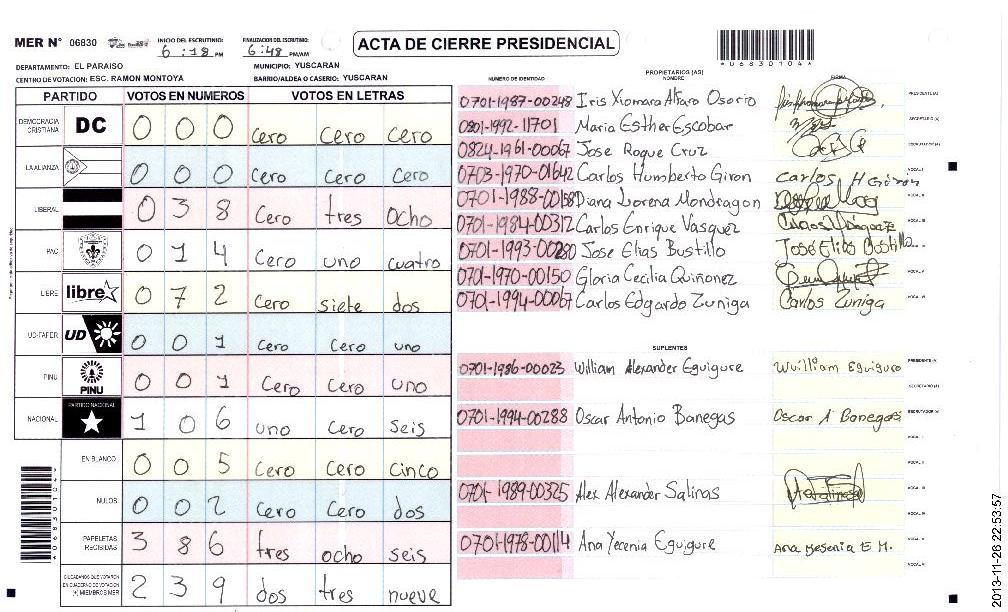 MER N° 06830
INICIO DEL ESCRUTINIO: 6:18 PM
FINALIZACION DEL ESCRUTINIO: 6:48 PM/AM
ACTA DE CIERRE PRESIDENCIAL
*06830104*
DEPARTAMENTO: EL PARAISO
MUNICIPIO: YUSCARAN
CENTRO DE VOTACION: ESC. RAMON MONTOYA
BARRIO/ALDEA O CASERIO: YUSCARAN
PARTIDO VOTOS EN NUMEROS VOTOS EN LETRAS
DEMOCRACIA CRISTIANA DC 0 0 0 Cero Cero Cero
LA ALIANZA 0 0 0 Cero Cero Cero
LIBERAL 0 3 8 Cero tres ocho
PAC 0 1 4 Cero uno cuatro
LIBRE libre 0 7 2 Cero siete dos
UD-FAPER UD 0 0 1 Cero Cero uno
PINU PINU 0 0 1 Cero Cero uno
NACIONAL PARTIDO NACIONAL 1 0 6 uno Cero seis
EN BLANCO 0 0 5 Cero Cero Cinco
NULOS 0 0 2 Cero Cero dos
PAPELETAS RECIBIDAS 3 8 6 tres ocho seis
CIUDADANOS QUE VOTARON EN CUADERNO DE VOTACION (+) MIEMBROS MER 2 3 9 dos tres nueve
*06830104*
NUMERO DE IDENTIDAD PROPIETARIOS (AS) NOMBRE FIRMA
0701-1987-00248 Iris Xiomara Alfaro Osorio PRESIDENTE (A)
0801-1992-11701 Maria Esther Escobar SECRETARIO (A)
0824-1961-00067 Jose Roque Cruz ESCRUTADOR (A)
0703-1970-01642 Carlos Humberto Giron Carlos H Giron VOCAL I
0701-1988-00158 Diana Lorena Mondragon VOCAL II
0701-1984-00312 Carlos Enrique Vasquez VOCAL III
0701-1993-00280 Jose Elias Bustillo José Elias Bustillo VOCAL IV
0701-1970-00150 Gloria Cecilia Quiñonez VOCAL V
0701-1994-00067 Carlos Edgardo Zuniga Carlos Zuniga VOCAL VI
SUPLENTES
0701-1986-00023 William Alexander Eguigure Wuilliam Eguigure PRESIDENTE (A)
SECRETARIO (A)
0701-1994-00288 Oscar Antonio Banegas Oscar A Banegas ESCRUTADOR (A)
VOCAL I
VOCAL II
0701-1989-00325 Alex Alexander Salinas VOCAL III
VOCAL IV
0701-1978-00114 Ana Yecenia Eguigure Ana Yesenia E M. VOCAL V
VOCAL VI
2013-11-26 22:53:57